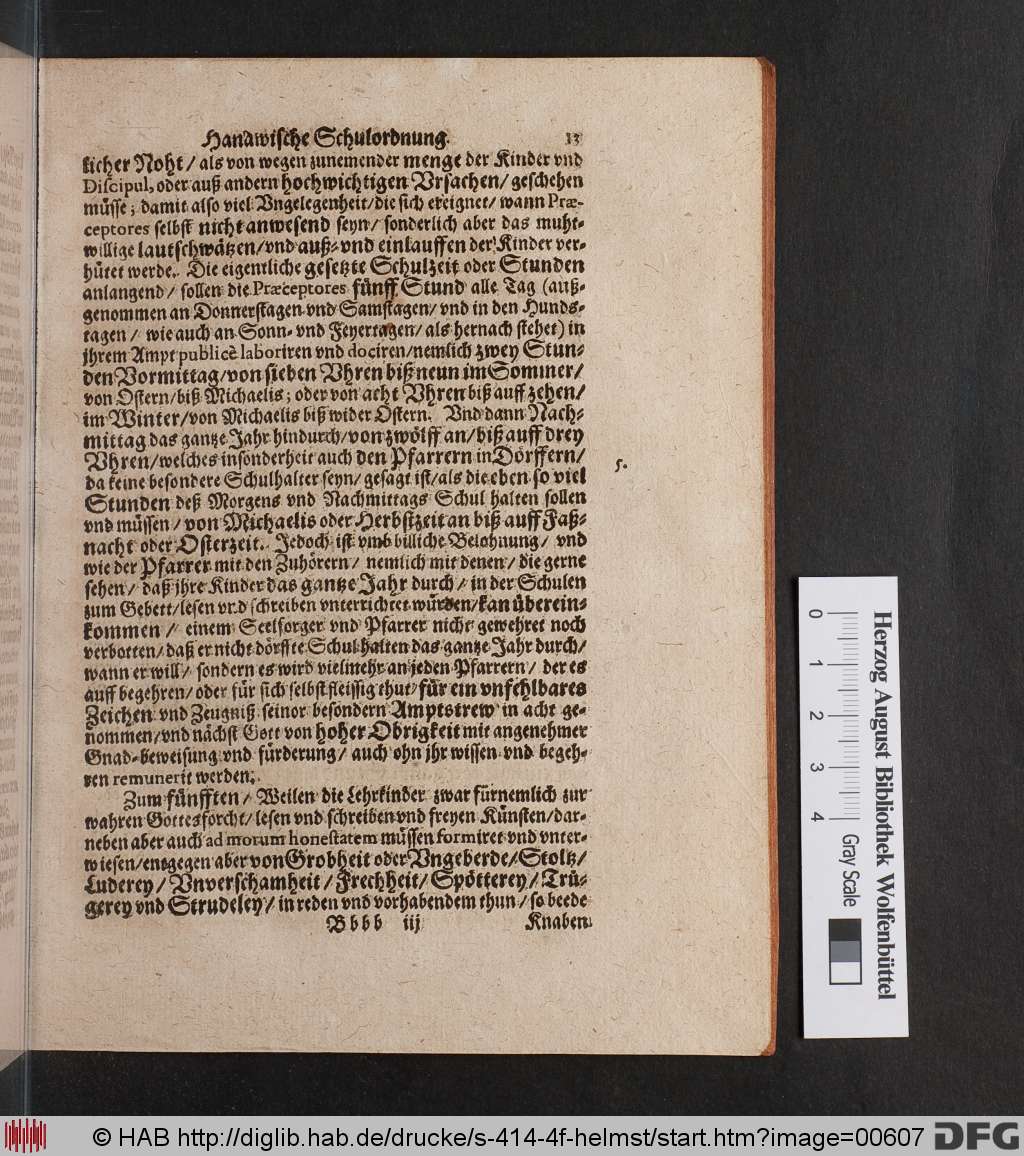 Hanawische Schulordnung. 13
licher Noht / als von wegen zunemender menge der Kinder vnd
Discipul, oder auß andern hochwichtigen Vrsachen / geschehen
müsse; damit also viel Vngelegenheit / die sich ereignet / wann Præ-
ceptores selbst nicht anwesend seyn / sonderlich aber das muht-
willige lautschwätzen / vnd auß- vnd einlauffen der Kinder ver-
hütet werde. Die eigentliche gesetzte Schulzeit oder Stunden
anlangend / sollen die Præceptores fünff Stund alle Tag (auß-
genommen an Donnerstagen vnd Samstagen / vnd in den Hunds-
tagen / wie auch an Sonn- vnd Feyertagen / als hernach stehet) in
jhrem Ampt publicè laboriren vnd dociren / nemlich zwey Stun-
den Vormittag / von sieben Vhren biß neun im Sommer /
von Ostern / biß Michaelis; oder von acht Vhren biß auff zehen /
im Winter / von Michaelis biß wider Ostern. Vnd dann Nach-
mittag das gantze Jahr hindurch / von zwölff an / biß auff drey
Vhren / welches insonderheit auch den Pfarrern in Dörffern /
da keine besondere Schulhalter seyn / gesagt ist / als die eben so viel
5.
Stunden deß Morgens vnd Nachmittags Schul halten sollen
vnd müssen / von Michaelis oder Herbstzeit an biß auff Faß-
nacht oder Osterzeit. Jedoch ist vmb billiche Belohnung / vnd
wie der Pfarrer mit den Zuhörern / nemlich mit denen / die gerne
sehen / daß jhre Kinder das gantze Jahr durch / in der Schulen
zum Gebett / lesen vnd schreiben vnterrichtet würden / kan überein-
kommen / einem Seelsorger vnd Pfarrer nicht gewehret noch
verbotten / daß er nicht dörffte Schul halten das gantze Jahr durch /
wann er will / sondern es wird vielmehr an jeden Pfarrern / der es
auff begehren / oder für sich selbst fleissig thut / für ein vnfehlbares
Zeichen vnd Zeugniß seinor besondern Amptstrew in acht ge-
nommen / vnd nächst Gott von hoher Obrigkeit mit angenehmer
Gnad-beweisung vnd fürderung / auch ohn jhr wissen vnd begeh-
ren remunerit werden.
Zum fünfften / Weilen die Lehrkinder zwar fürnemlich zur
wahren Gottesforcht / lesen vnd schreiben vnd freyen Künsten / dar-
neben aber auch ad morum honestatem müssen formiret vnd vnter-
wiesen / entgegen aber von Grobheit oder Vngeberde / Stoltz /
Luderey / Vnverschamheit / Frechheit / Spötterey / Trü-
gerey vnd Strudeley / in reden vnd vorhabendem thun / so beede
Bbbb iij Knaben
0 1 2 3 4
Herzog August Bibliothek Wolfenbüttel
Gray Scale
© HAB http://diglib.hab.de/drucke/s-414-4f-helmst/start.htm?image=00607
DFG